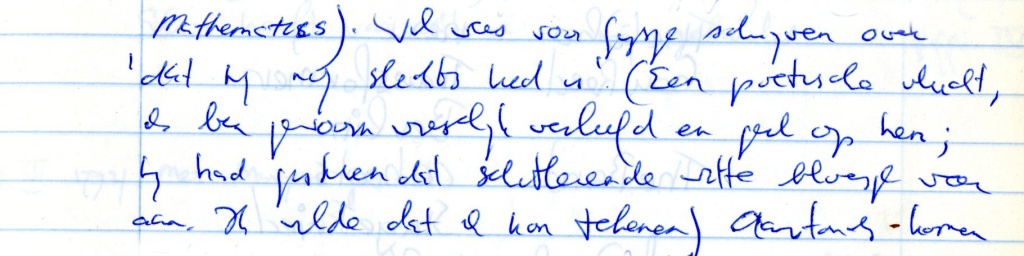 Mathematics). Wil voor schrijven over
'dat hij mij slechts lied is'. (Een poëtische vlucht,
ik ben gewoon vreselijk verliefd en geil op hem;
hij had gisteren dat schitterende witte bloesje weer
aan. Ik wilde dat ik kon tekenen) - komen